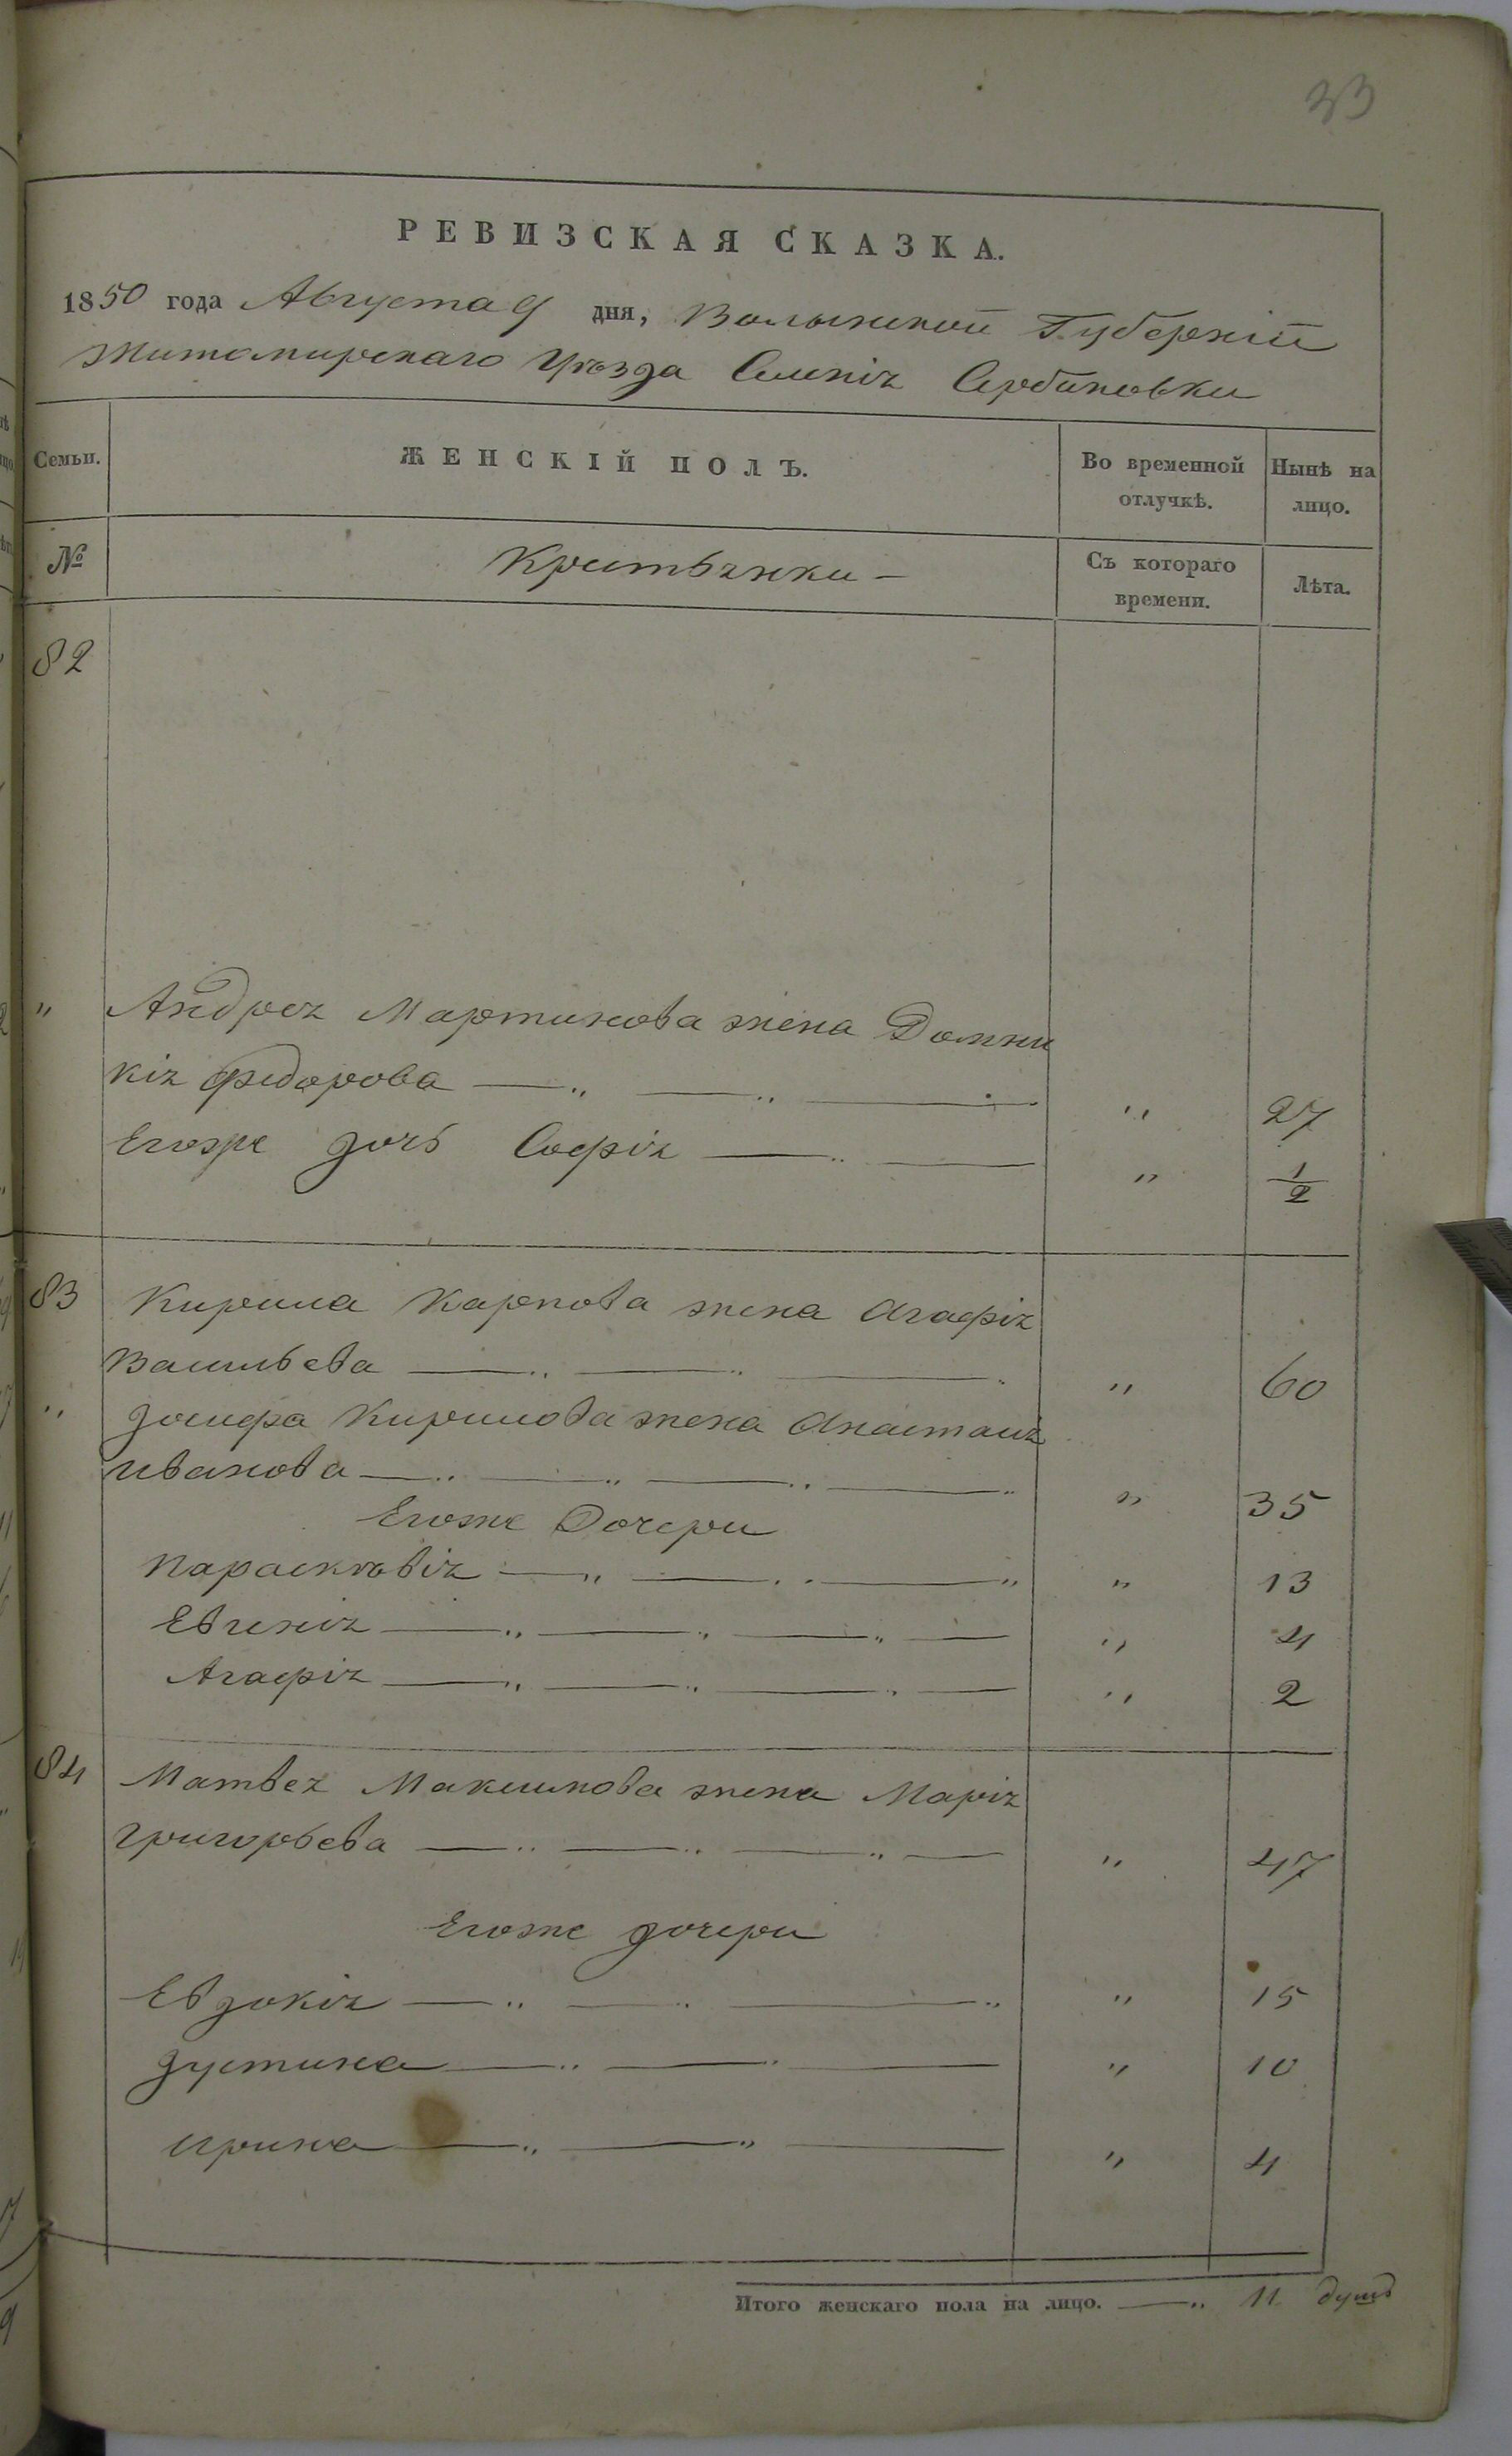 33
РЕВИЗСКАЯ СКАЗКА.
1850 года Августа 9 дня, Волынской Губерніи
Житомирскаго Уѣзда Сербиновки
Семьи. ЖЕНСКІЙ ПОЛЪ. Во временной отлучкѣ. Нынѣ на лицо.
№ Крестьянки — Съ котораго времени. Лѣта.
82
" Андрея Мартинова жена Домни
кія Федорова — " — " — " 27
Егоже дочь Софія — " — " 1/2
83 Кирила Карпова жена Агафія
Васильева — " — " — " " 60
" Іосифа Кирилова жена Анастасія
Иванова — " — " — " — " " 35
Егоже Дочери
Параскѣвія — " — " — " " 13
Евгенія — " — " — " — " 4
Агафія — " — " — " — " 2
84 Матвея Максимова жена Марія
Григорьева — " — " — " — " 47
Егоже дочери
Евдокія — " — " — " " 15
Іустина — " — " — " 10
Ирина — " — " — " 4
Итого женскаго пола на лицо. — " 11 душъ